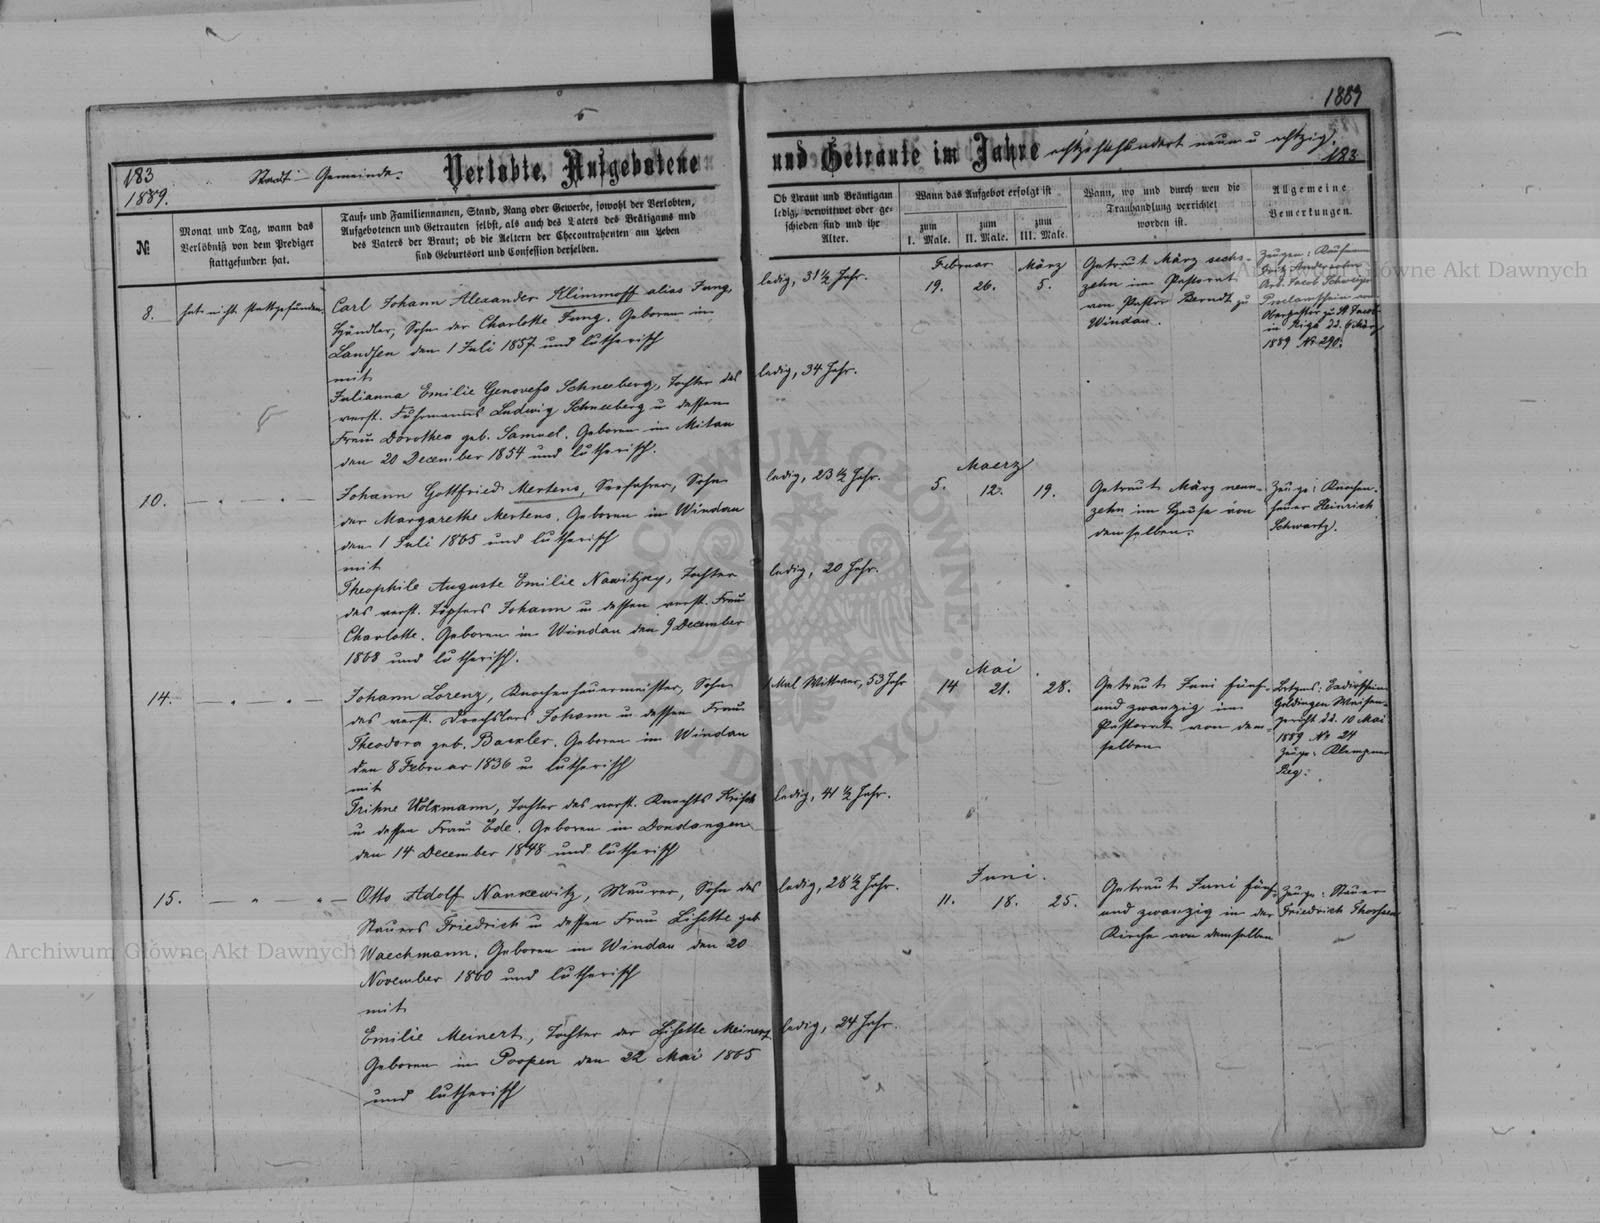 1889
5
183
1889.
Stadt-Gemeinde.
Verlobte, Aufgebotene
und Getraute im Jahre achtzehnhundert neun u achtzig.
183
№
Monat und Tag, wann das
Verlöbniß von dem Prediger
stattgefunden hat.
Tauf- und Familiennamen, Stand, Rang oder Gewerbe, sowohl der Verlobten,
Aufgebotenen und Getrauten selbst, als auch des Vaters des Bräutigams und
des Vaters der Braut; ob die Aeltern der Ehecontrahenten am Leben
sind Geburtsort und Confession derselben.
Ob Braut und Bräutigam
ledig, verwittwet oder ge-
schieden sind und ihr
Alter.
Wann das Aufgebot erfolgt ist
zum
I. Male.
zum
II. Male.
zum
III. Male.
Wann, wo und durch wen die
Trauhandlung verrichtet
worden ist.
Allgemeine
Bemerkungen.
8.
hat nicht stattgefunden.
Carl Johann Alexander Klimmoff alias Jung,
Händler, Sohn der Charlotte Jung. Geboren in
Landsen den 1 Juli 1857 und lutherisch
mit
Julianna Emilie Genovefa Schneeberg, Tochter des
verst. Fuhrmanns Ludwig Schneeberg u dessen
Frau Dorothea geb. Samuel. Geboren in Mitau
den 20 December 1854 und lutherisch.
ledig, 31 1/2 Jahr.
ledig, 34 Jahr.
Februar
März
19.
26.
5.
Getraut März sech-
zehn im Pastorat
von Pastor Berndt zu
Windau.
Zeugen: Kaufmann
Jacob
Proclamschein vom
Oberpastor zu St Jacob
in Riga dd. 6 März
1889 № 290.
10.
Johann Gottfried Mertens, Seefahrer, Sohn
der Margarethe Mertens. Geboren in Windau
den 1 Juli 1865 und lutherisch
mit
Theophile Auguste Emilie Nawitzky, Tochter
des verst. Töpfers Johann u dessen verst. Frau
Charlotte. Geboren in Windau den 9 December
1868 und lutherisch.
ledig, 23 1/2 Jahr.
ledig, 20 Jahr.
Maerz
5.
12.
19.
Getraut März neun-
zehn im Hause von
demselben.
Zeuge: Knochen-
hauer Heinrich
Schwartz.
14.
Johann Lorenz, Knochenhauermeister, Sohn
des verst. Drechslers Johann u dessen Frau
Theodora geb. Backler. Geboren in Windau
den 8 Februar 1836 u lutherisch
mit
Trihne Wolkmann, Tochter des verst. Knechts Krisch
u dessen Frau Ede. Geboren in Dondangen
den 14 December 1848 und lutherisch
1 Mal Wittwer, 53 Jahr
Ledig, 41 1/2 Jahr.
Mai
14
21.
28.
Getraut Juni fünf-
und zwanzig im
Pastorat von dem-
selben
Goldingen Waisen-
gericht dd. 10 Mai
1889 № 24
Zeuge: Klempner
15.
Otto Adolf Nankewitz, Maurer, Sohn des
Stauers Friedrich u dessen Frau Lisette geb
Waechmann. Geboren in Windau den 20
November 1860 und lutherisch
mit
Emilie Meinert, Tochter der Lisette Meinert
Geboren in Poopen den 22 Mai 1865
und lutherisch
ledig, 28 1/2 Jahr.
ledig, 24 Jahr.
Juni.
11.
18.
25.
Getraut Juni fünf-
und zwanzig in der
Kirche von demselben
Zeuge: Stauer
Friedrich
Archiwum Główne Akt Dawnych
Archiwum Główne Akt Dawnych
ARCHIWUM GŁÓWNE AKT DAWNYCH